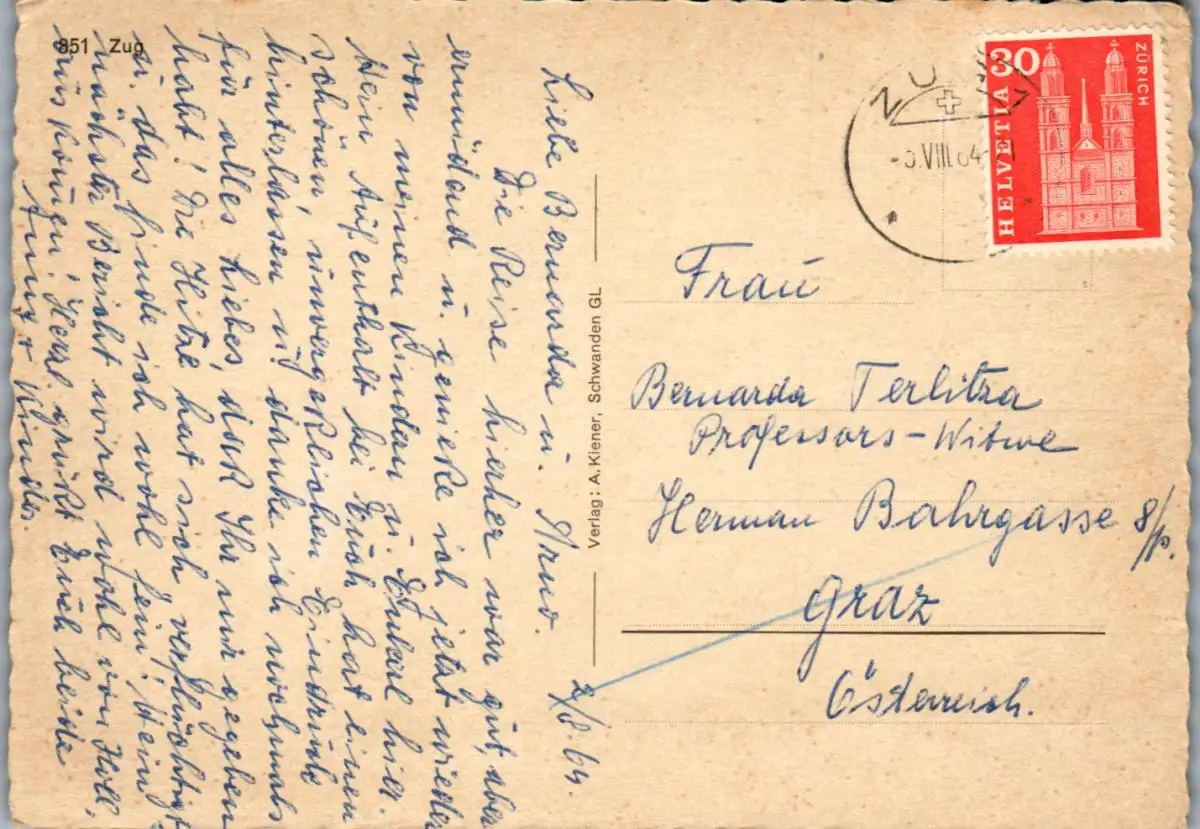 851 Zug
Liebe Bernarda u. Arno. 2/8.64.
Die Reise hierher war gut, aber
ermüdend u. genieße ich jetzt wieder
von meinen Kindern u. Enkel hier.
Mein Aufenthalt bei Euch hat einen
schönen, unvergeßlichen Eindruck
hinterlassen u. danke ich nochmals
für alles Liebe, daß Ihr mir gegeben
habt! Die Hitze hat sich "verflüchtigt"
u. das finde ich wohl fein! Mein
nächster Bericht wird wohl von Holl.
aus kommen! Herzl. grüßt Euch beide
Anny + Kinder.
Verlag: A. Kiener, Schwanden GL
ZUG
VIII.64
HELVETIA 30
ZÜRICH
Frau
Bernarda Terlitza
Professors-Witwe
Herman Bahrgasse 8/p.
Graz
Österreich.